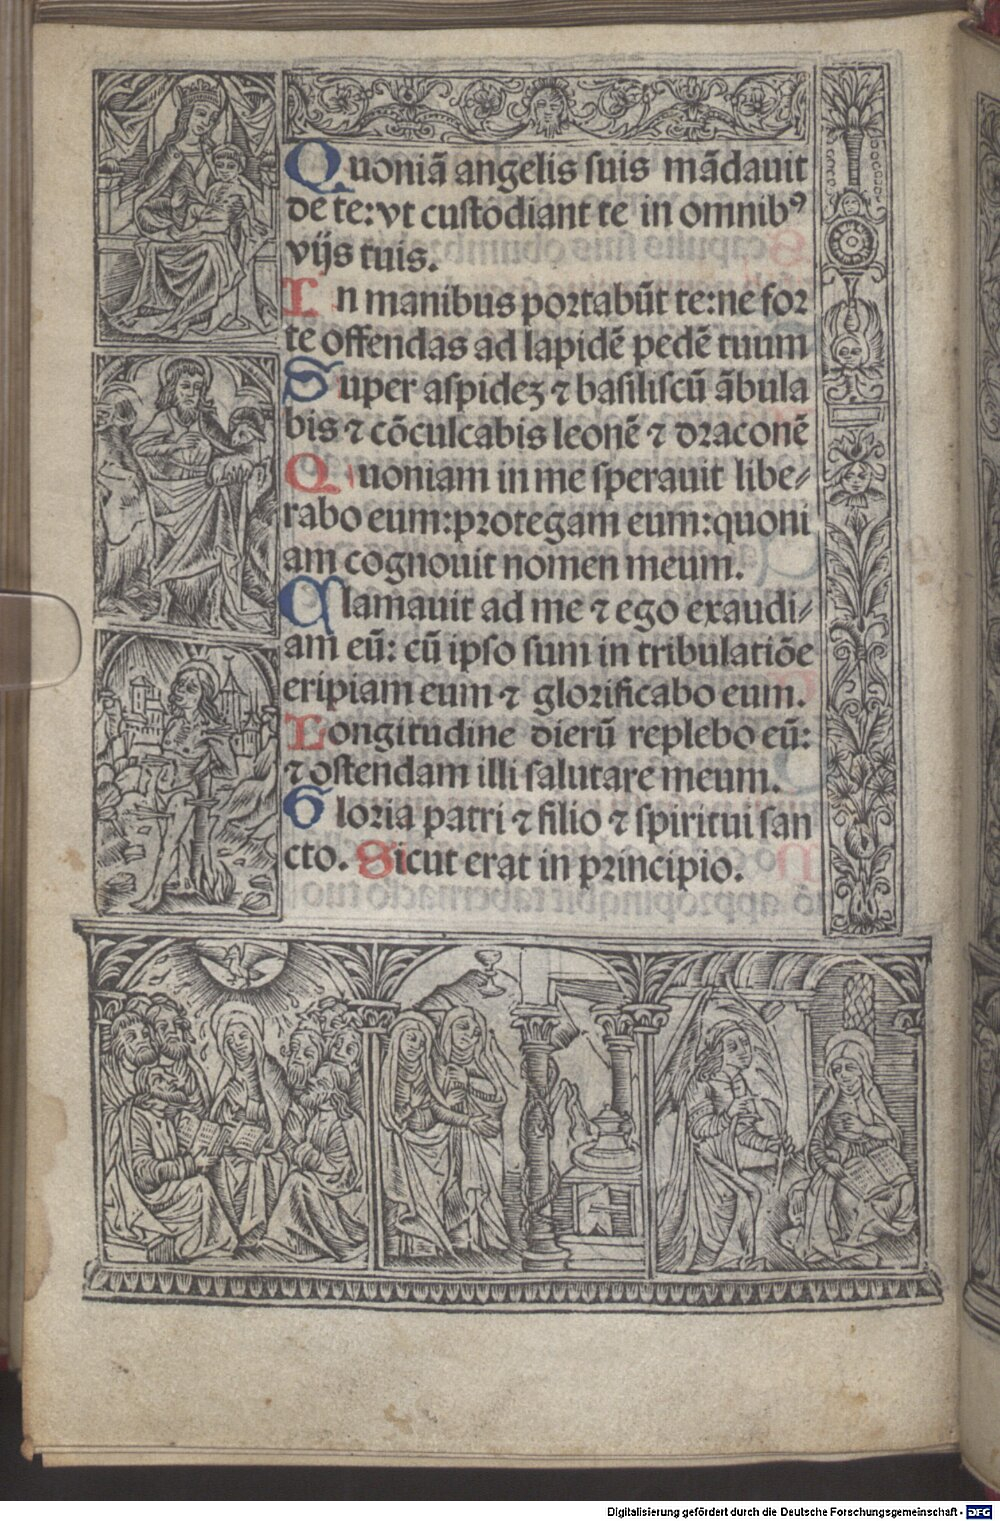 Quoniā angelis suis mādauit
de te:vt custodiant te in omnibꝰ
vijs tuis.
In manibus portabūt te:ne for
te offendas ad lapidē pedē tuum
Super aspidez ⁊ basiliscū ābula
bis ⁊ cōculcabis leonē ⁊ draconē
Quoniam in me sperauit libe⸗
rabo eum:protegam eum:quoni
am cognouit nomen meum.
Clamauit ad me ⁊ ego exaudi⸗
am eū: cū ipso sum in tribulatiōe
eripiam eum ⁊ glorificabo eum.
Longitudine dierū replebo eū:
⁊ ostendam illi salutare meum.
Gloria patri ⁊ filio ⁊ spiritui san
cto. Sicut erat in principio.
Digitalisierung gefördert durch die Deutsche Forschungsgemeinschaft - DFG